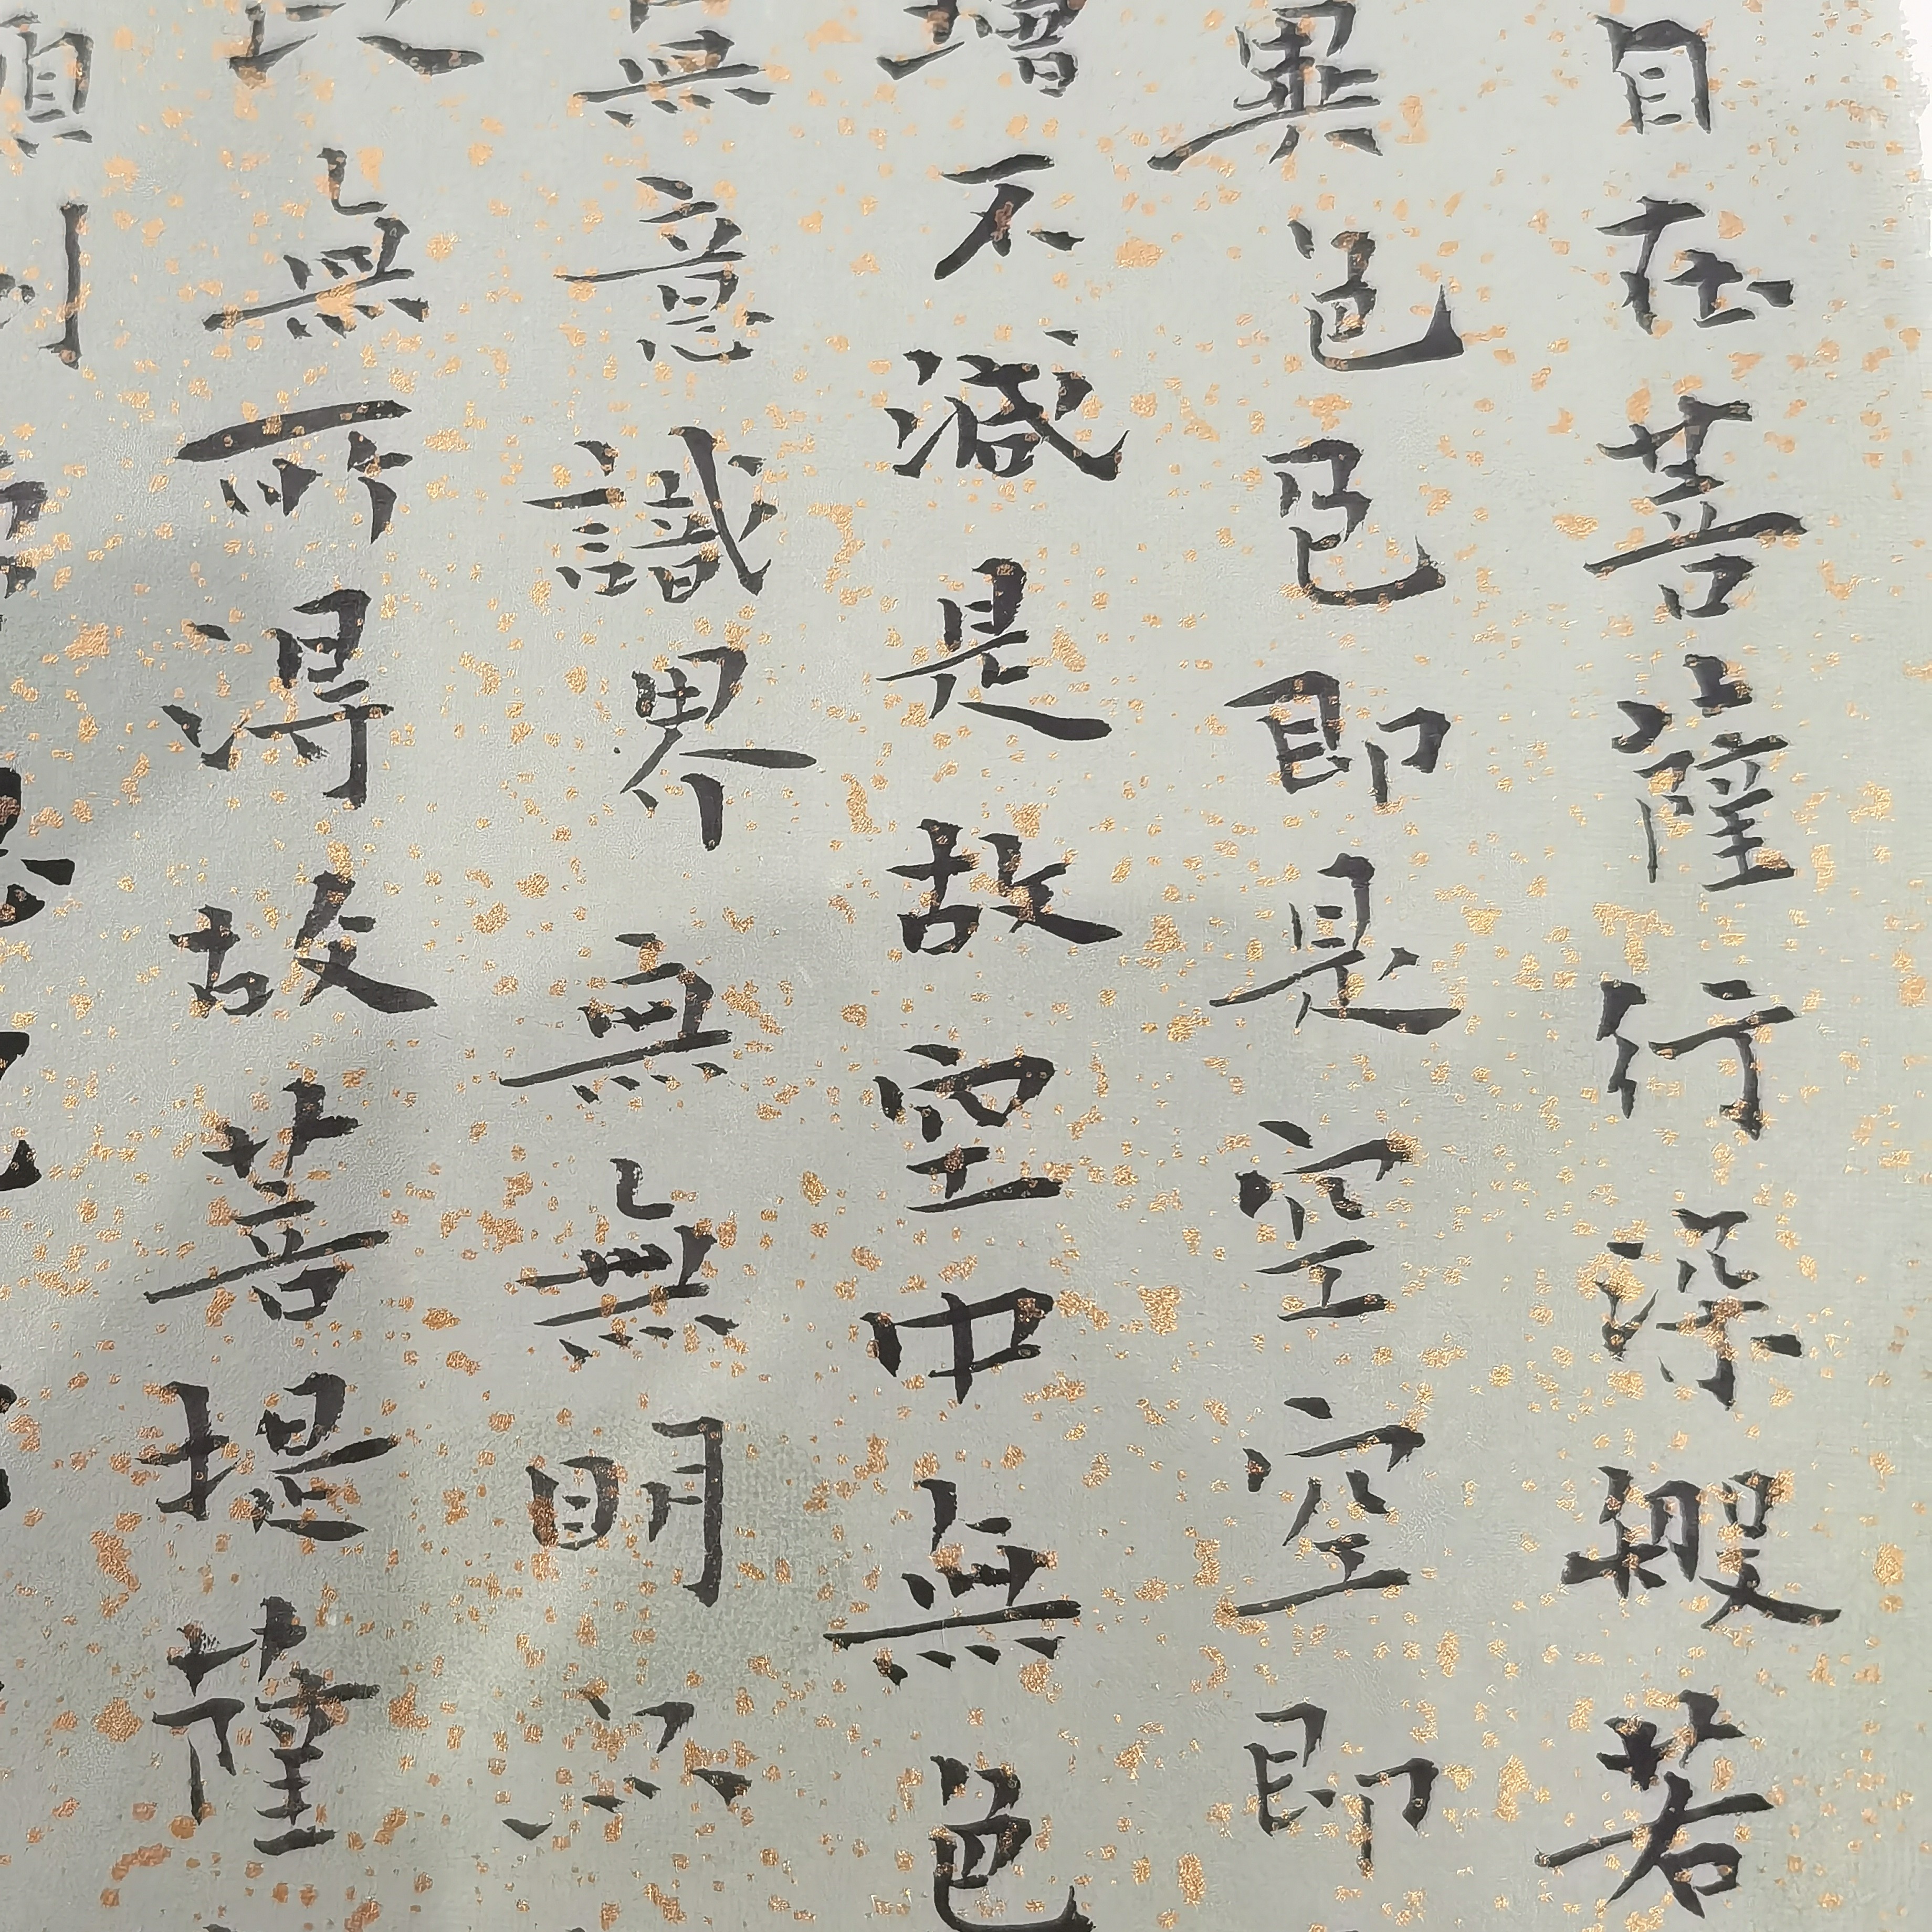 自在菩薩行深般若
異色色即是空空即
增不減是故空中無色
無意識界無無明亦
以無所得故菩提薩